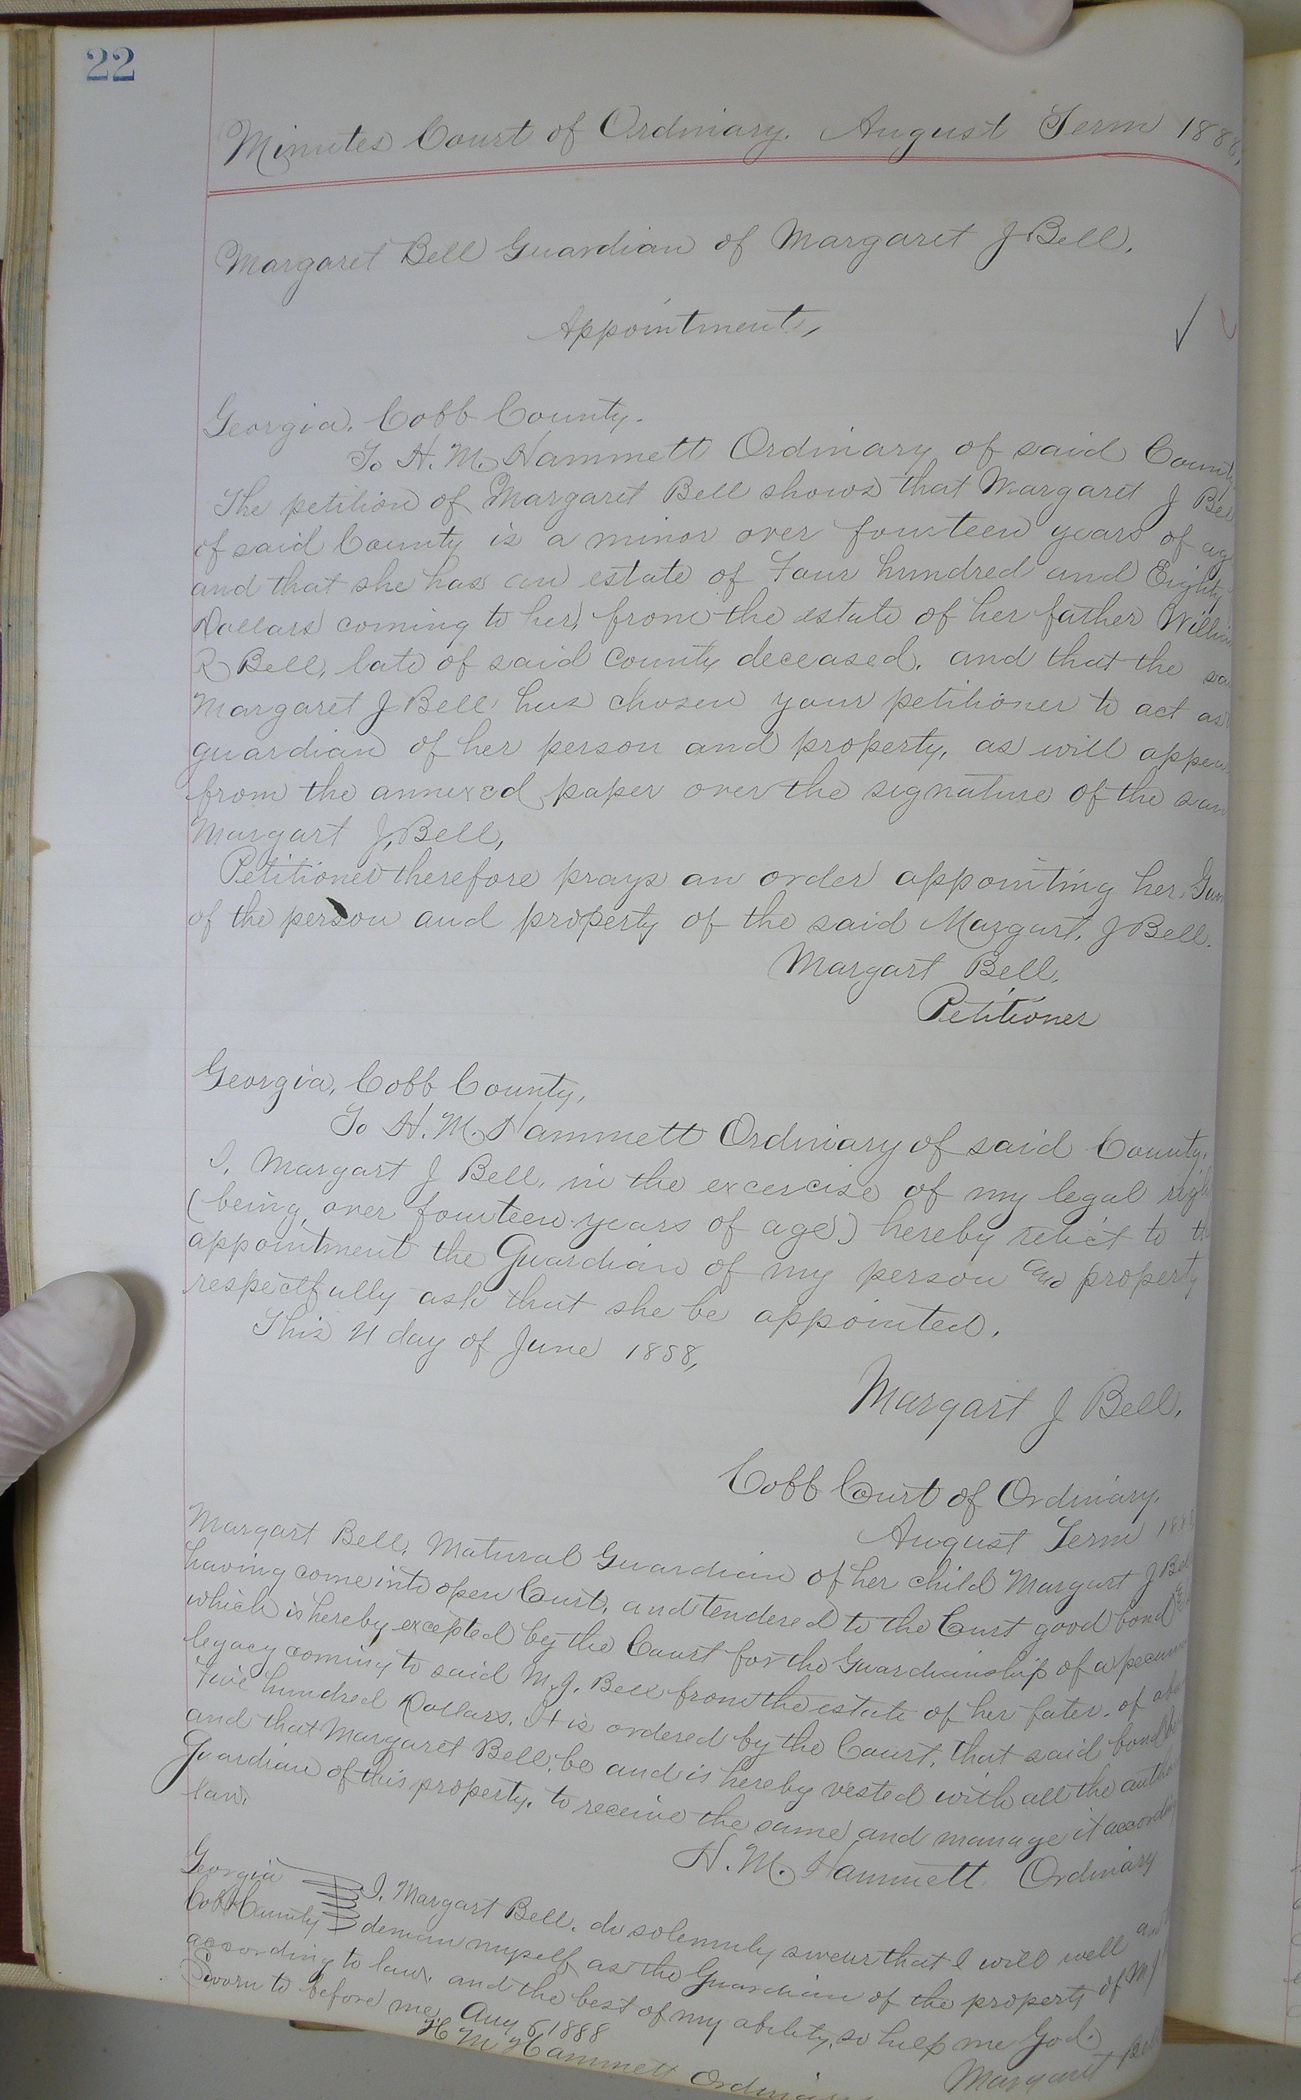 22
Minutes Court of Ordinary. August Term 1888,
Margaret Bell Guardian of Margaret J Bell,
Appointment,
Georgia, Cobb County.
To H. M. Hammett Ordinary of said County
The petition of Margaret Bell shows that Margaret J Bel
of said County is a minor over fourteen years of ag
and that she has an estate of Four hundred and Eighty
Dollars coming to her, from the estate of her father William
R Bell, late of said County deceased. and that the sa
Margaret J Bell has chosen your petitioner to act as
guardian of her person and property, as will appea
from the annexed paper over the signature of the sai
Margart J. Bell,
Petitioner therefore prays an order appointing her Guar
of the person and property of the said Margart. J Bell.
Margart Bell,
Petitioner
Georgia, Cobb County,
To H. M. Hammett Ordinary of said County,
I, Margart J Bell, in the excercise of my legal righ
(being over fourteen years of age) hereby to th
appointment the Guardian of my person and property
respectfully ask that she be appointed.
This day of June 1888,
Margart J Bell,
Cobb Court of Ordinary.
August Term 188
Margart Bell, Natural Guardian of her child Margart J Bel
having come into open Court, and tendered to the Court good bond
which is hereby excepted by the Court for the Guardianship of a pecun
legacy coming to said M. J. Bell from the estate of her fater. of abo
Five hundred Dollars. It is ordered by the Court, that said bond
and that Margaret Bell, be and is hereby vested with all the autho
Guardian of this property, to receive the same and manage it accordin
law.
H. M. Hammett Ordinary
Georgia
Cobb County I, Margart Bell, do solemnly swear that I will well an
demean myself as the Guardian of the property of M J
according to law, and the best of my ability, so help me God.
Sworn to before me, Aug 6, 1888
H M Hammett Ordinary
Margaret Bell